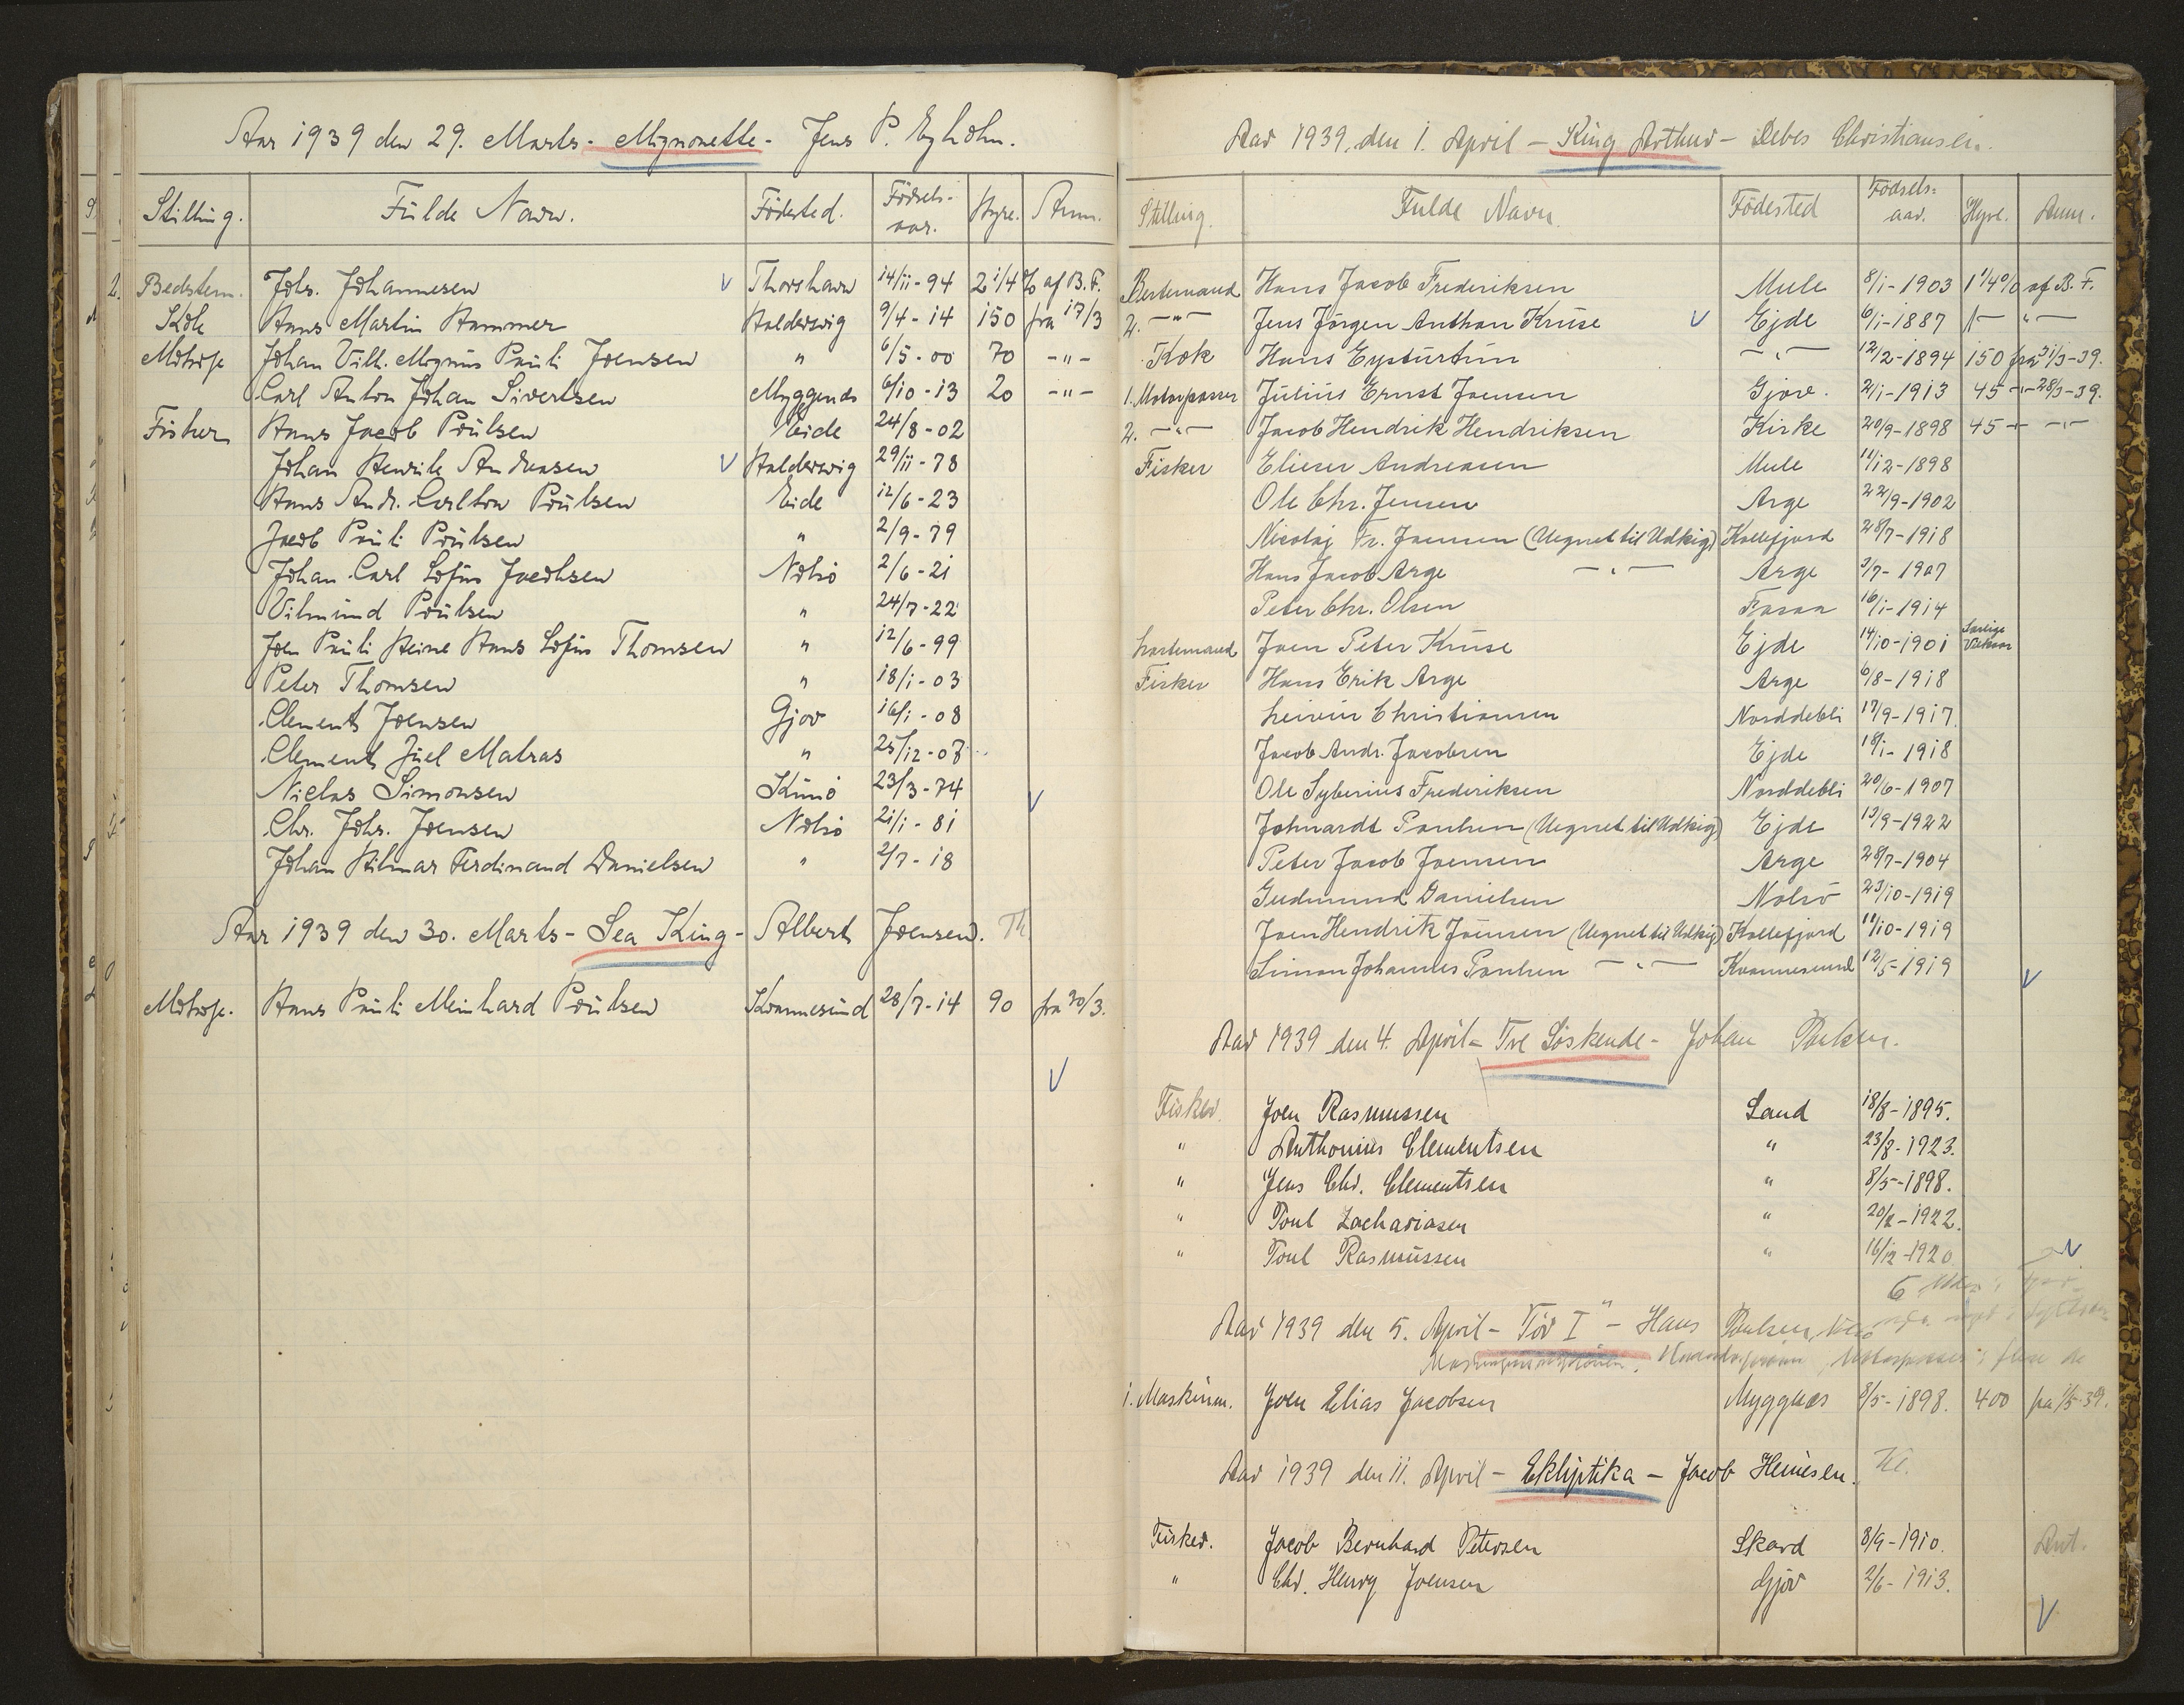 Aar 1939 den 29. Marts - Mignonette - Jens P. Eyholm.
Stilling. Fulde Navn. Födested. Födsels-aar. Hyre. Anm.
Bedstem. Johs. Johannesen Thorshavn 14/11-94 2 1/4 % af B.F.
Kok Hans Martin Hammer Haldersvig 9/4-14 150 fra 17/3
Motorp. Johan Vilh. Magnus Pauli Joensen " 6/5-00 70 -"-
Carl Anton Johan Sivertsen Myggenæs 6/10-13 20 -"-
Fisker Hans Jacob Poulsen Eide 24/8-02
Johan Henrik Andreasen Haldersvig 29/11-78
Hans Andr. Carlton Poulsen Eide 12/6-23
Jacob Pauli Poulsen " 2/9-79
Johan Carl Sofus Jacobsen Nolsö 2/6-21
Vilmund Poulsen " 24/7-22
Joen Pauli Heine Hans Sofus Thomsen " 12/6-99
Peter Thomsen " 18/1-03
Clement Joensen Gjov 16/1-08
Clement Juel Matras " 25/12-07
Niclas Simonsen Kunö 23/3-74
Chr. Johs. Joensen Nolsö 21/1-81
Johan Hilmar Ferdinand Danielsen " 2/7-18
Aar 1939 den 30. Marts - Sea King - Albert Joensen. Th.
Motorp. Hans Pauli Meinhard Poulsen Kvannesund 28/7-14 90 fra 30/3.
Aar 1939. den 1. April - King Arthur - Debes Christiansen.
Stilling. Fulde Navn Födested Födsels-aar. Hyre. Anm.
Bestemand Hans Jacob Frederiksen Mule 8/1-1903 1 1/4 0/0 af B.F.
2. -"- Jens Jörgen Anthon Kruse Ejde 6/1-1887 1- -"-
Kok Hans Eysturtún -"- 12/2-1894 150 fra 31/3-39.
1. Motorpasser Julius Ernst Joensen Gjov. 2/1-1913 45 -"- 28/3-39.
2. -"- Jacob Hendrik Hendriksen Kirke 20/9-1898 45 -"-
Fisker Elieser Andreasen Mule 11/12-1898
Ole Chr. Jensen Arge 22/9-1902
Nicolaj Fr. Joensen (Uegnet til Udkig) Kollefjord 28/7-1918
Hans Jacob Arge -"- Arge 3/7-1907
Peter Chr. Olsen Fasaa 16/1-1914
Lastemand Joen Peter Kruse Ejde 14/10-1901 Særlige Vilkaar
Fisker Hans Erik Arge Arge 6/8-1918
Leivur Christiansen Norddebli 17/9-1917.
Jacob Andr. Jacobsen Ejde 18/1-1918
Ole Syberius Frederiksen Norddebli 20/6-1907
Johnardt Poulsen (Uegnet til Udkig) Ejde 13/9-1922
Peter Jacob Joensen Arge 28/7-1904
Gudmund Danielsen Nolsö 23/10-1919
Joen Hendrik Joensen (Uegnet til Udkig) Kollefjord 11/10-1919
Simon Johannes Poulsen -"- Kvannesund 12/5-1919
Aar 1939 den 4. April - Tre Söskende - Johan Poulsen.
Fisker. Joen Rasmussen Sand 18/8-1895.
" Anthonius Clementsen " 23/8-1923.
" Jens Chr. Clementsen " 8/5-1898.
" Poul Zachariasen " 20/2-1922.
" Poul Rasmussen " 16/12-1920
6
Aar 1939 den 5. April - Tór I" - Hans Poulsen,
1. Maskinm. Joen Elias Jacobsen Myggnæs 8/5-1898. 400 fra 1/5-39.
Aar 1939 den 11. April - Ekliptika - Jacob Heinesen. Kl.
Fisker. Jacob Bernhard Petersen Skard 8/9-1910.
" Chr. Henry Joensen Gjov 2/6-1913.